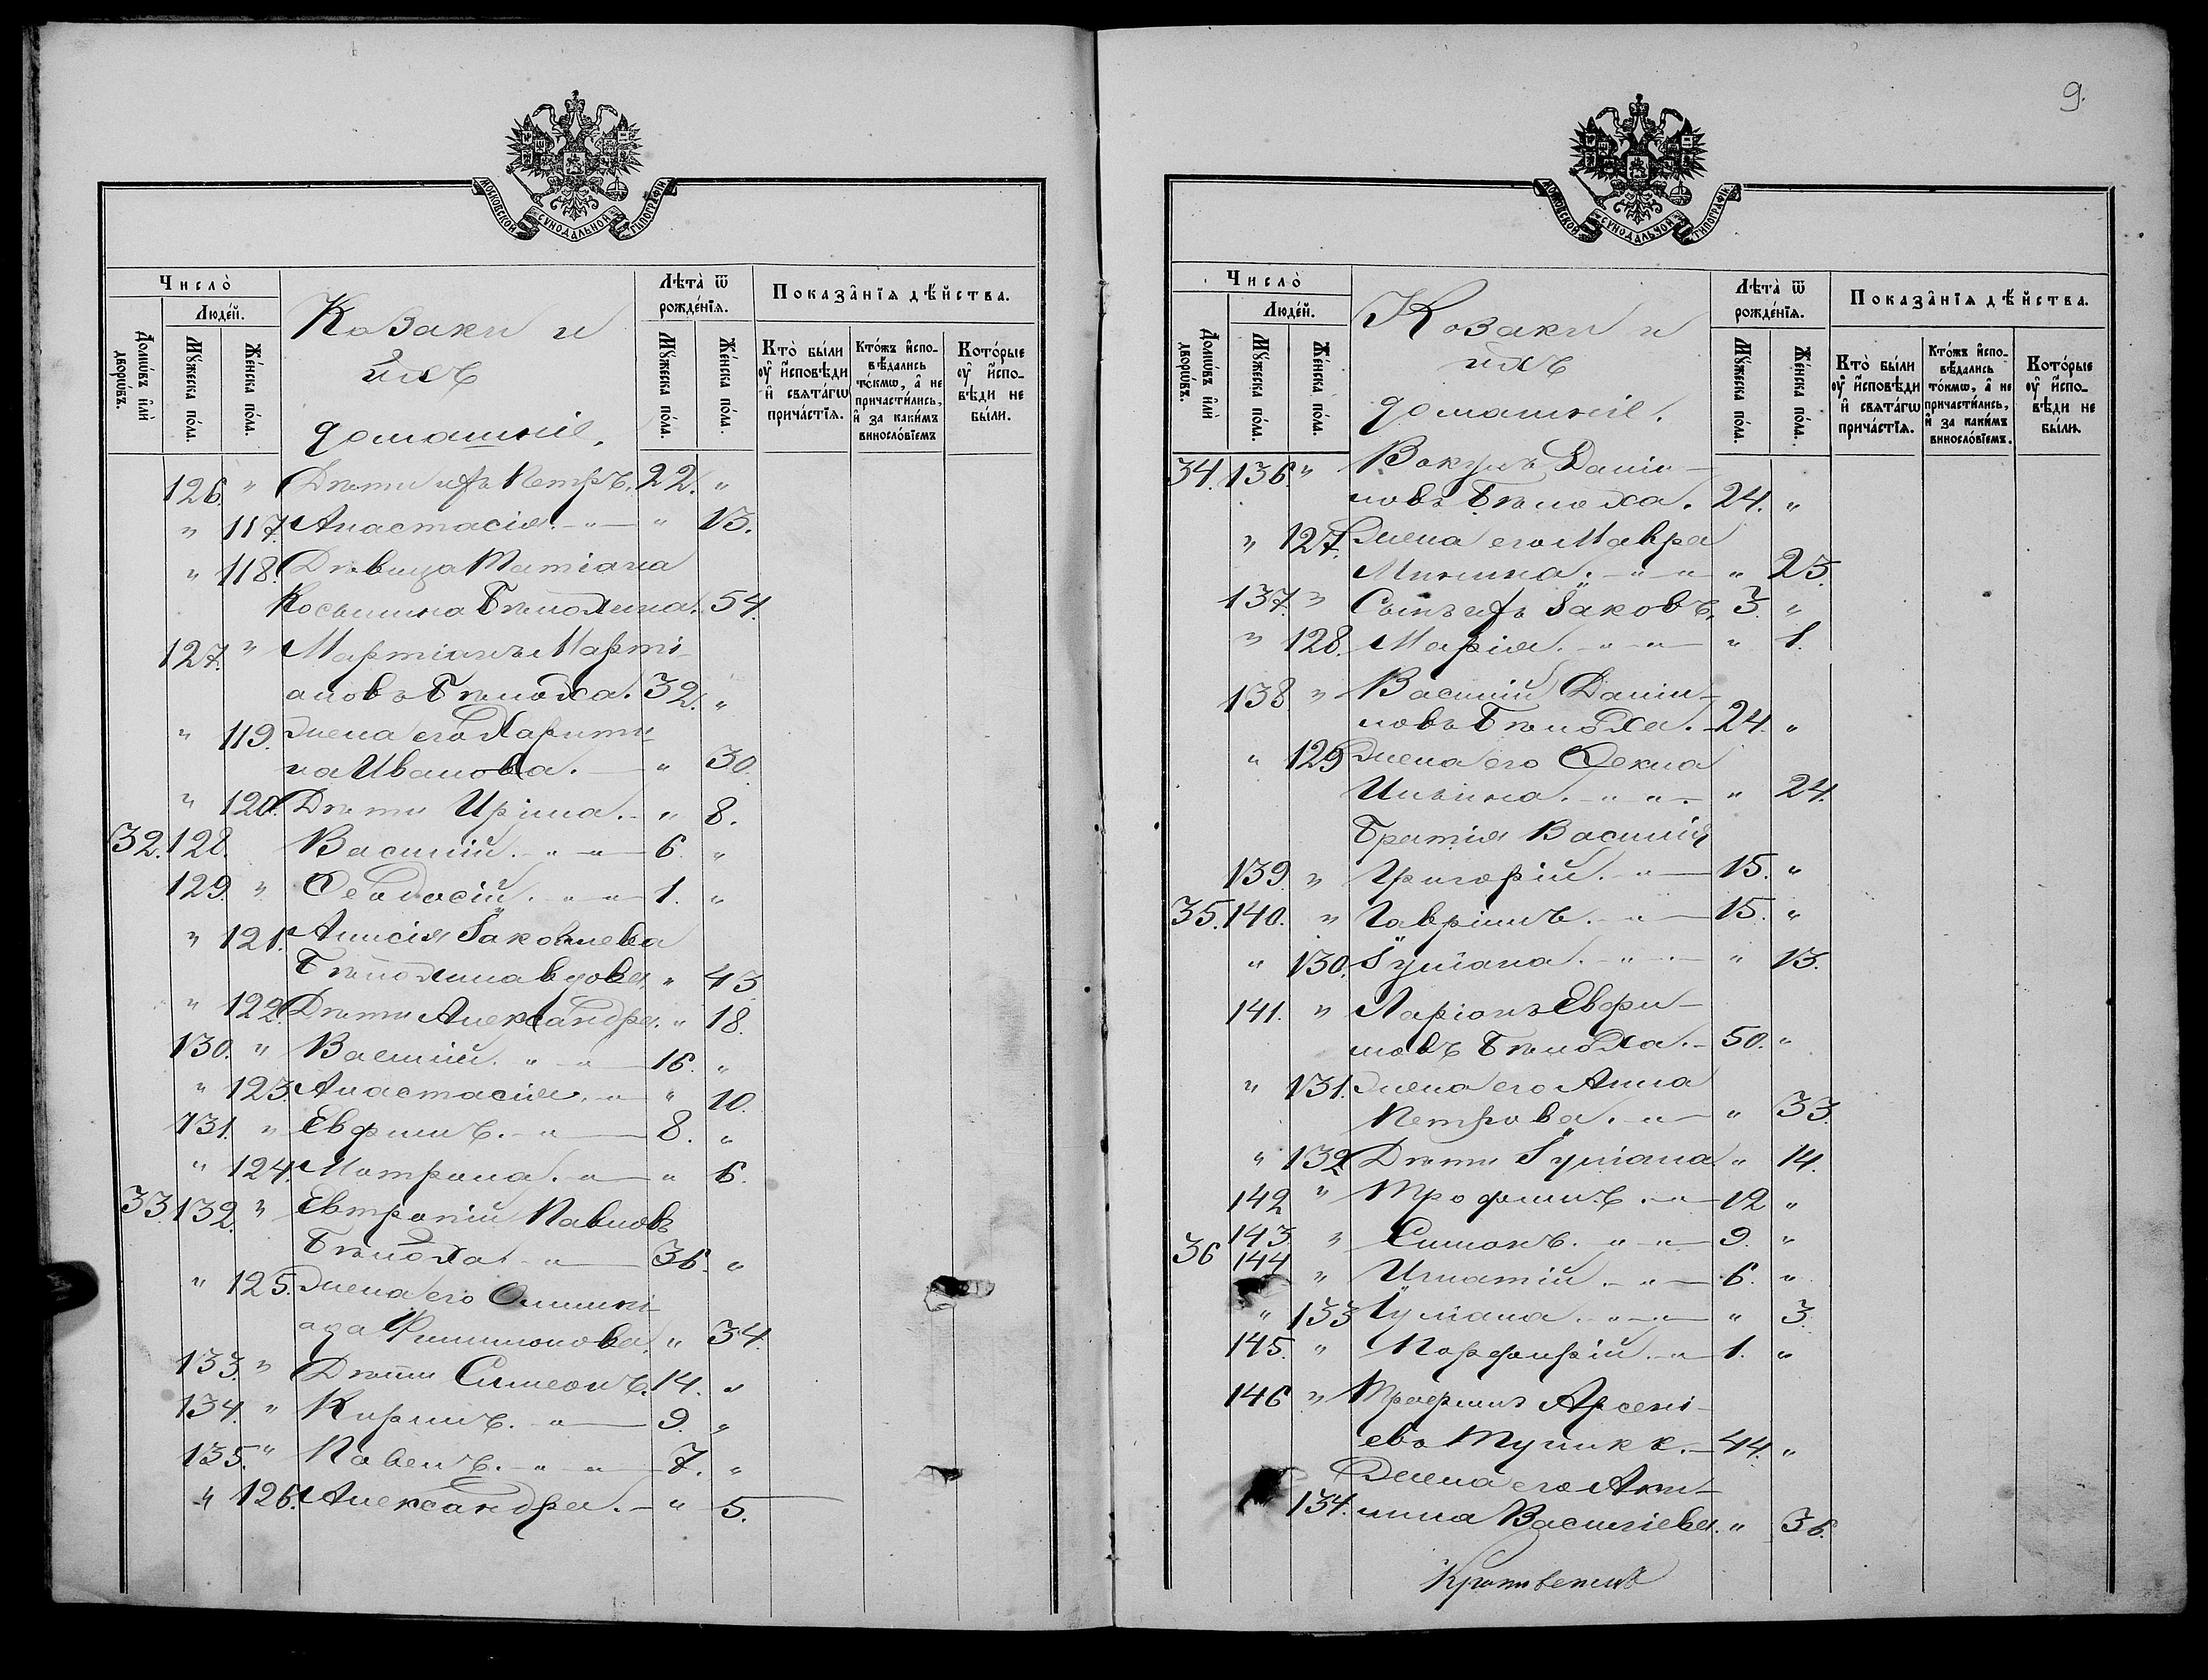 МОСКОВСКОЙ СУНОДАЛЬНОЙ ТΥПОГРАФІИ
Число̀
Люде́й.
Домѡ́въ и҆лѝ дворѡ́въ.
Мꙋ́жеска по́ла.
Же́нска по́ла.
Козаки и
ихъ
домашніе.
Лѣта̀ ѿ рожде́нїѧ.
Мꙋ́жеска по́ла.
Же́нска по́ла.
Показа̂нїѧ дѣ́йства.
Кто̀ бы́ли оу҆ и҆сповѣди и҆ свѧта́гѡ прича́стїѧ.
Кто́жъ и҆спо-вѣдались то́кмѡ, а҆ не причасти́лись, и҆ за каки́мъ винословїемъ
Кото́рые оу҆ и҆спо-вѣди не бы́ли.
126. " Дѣти ихъ Петръ. 22. "
" 117. Анастасія. - " - " 13.
" 118. Дѣвица Татіана
Косьмина Бѣлохина. 54.
127. " Мартіанъ Марті-
ановъ Бѣлоха. 32. "
" 119. Жена его Харити-
на Иванова. - " 30.
" 120. Дѣти Ирина. - " 8.
32. 128. Василій. - " - " - 6. "
129. " Ѳеодосій. - " - " - 1. "
" 121. Анисія Іаковлева
Бѣлохина вдова. " 43
" 122. Дѣти Александра. " 18.
130. " Василій. " - " - 16. "
" 123. Анастасія. - " - " 10.
131. " Евфимъ. - " - 8. "
" 124. Матрона. - " - " 6.
33. 132. " Евтропій Павловъ
Бѣлоха. - " - 36. "
" 125. Жена его Олимпі-
ада Филимонова. " 34.
133. " Дѣти Симеонъ. 14. "
134. " Кириллъ. - " - 9. "
135. " Павелъ. - " - " - 7. "
" 126. Александра. - " 5.
9.
МОСКОВСКОЙ СУНОДАЛЬНОЙ ТΥПОГРАФІИ
Число̀
Люде́й.
Домѡ́въ и҆лѝ дворѡ́въ.
Мꙋ́жеска по́ла.
Же́нска по́ла.
Козаки и
ихъ
домашніе.
Лѣта̀ ѿ рожде́нїѧ.
Мꙋ́жеска по́ла.
Же́нска по́ла.
Показа̂нїѧ дѣ́йства.
Кто̀ бы́ли оу҆ и҆сповѣди и҆ свѧта́гѡ прича́стїѧ.
Кто́жъ и҆спо-вѣдались то́кмѡ, а҆ не причасти́лись, и҆ за каки́мъ винословїемъ.
Кото́рые оу҆ и҆спо-вѣди не бы́ли.
34. 136. " Вакулъ Даніи-
ловъ Бѣлоха. 24. "
" 127. Жена его Мавра
Минина. - " - " - " 25.
137. " Сынъ ихъ Іаковъ. 3. "
" 128. Марія. - " - " - " 1.
138 " Василій Даніи-
ловъ Бѣлоха. - 24. "
" 129 Жена его Ѳекла
Ильина. - " - " - " 24.
Братія Василія
139 " Григорій. - " - 15. "
35. 140. " Гавріилъ. - " - 15. "
" 130. Іуліана. - " - " 13.
141. " Ларіонъ Евфи-
мовъ Бѣлоха. - 50. "
" 131. Жена его Анна
Петрова. - " - " 33.
" 132 Дѣти Іуліана. " 14.
142 " Трофимъ. - " - 12 "
143 " Симонъ. - " - " - 9. "
36 144 " Игнатій. - " - 6. "
" 133 Іуліана. - " - " - " 3.
145. " Порфирій. - " - 1. "
146 " Трофимъ Арсені-
евъ - 44. "
Жена его Аки-
134. лина Васильева. " 36.